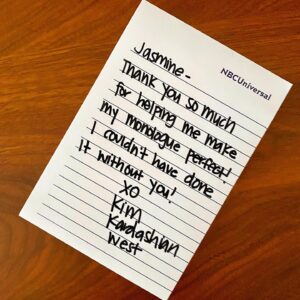 NBCUniversal
Jasmine-
Thank you so much
for helping me make
my monologue perfect!
I couldn't have done
it without you!
XO
Kim
Kardashian
West